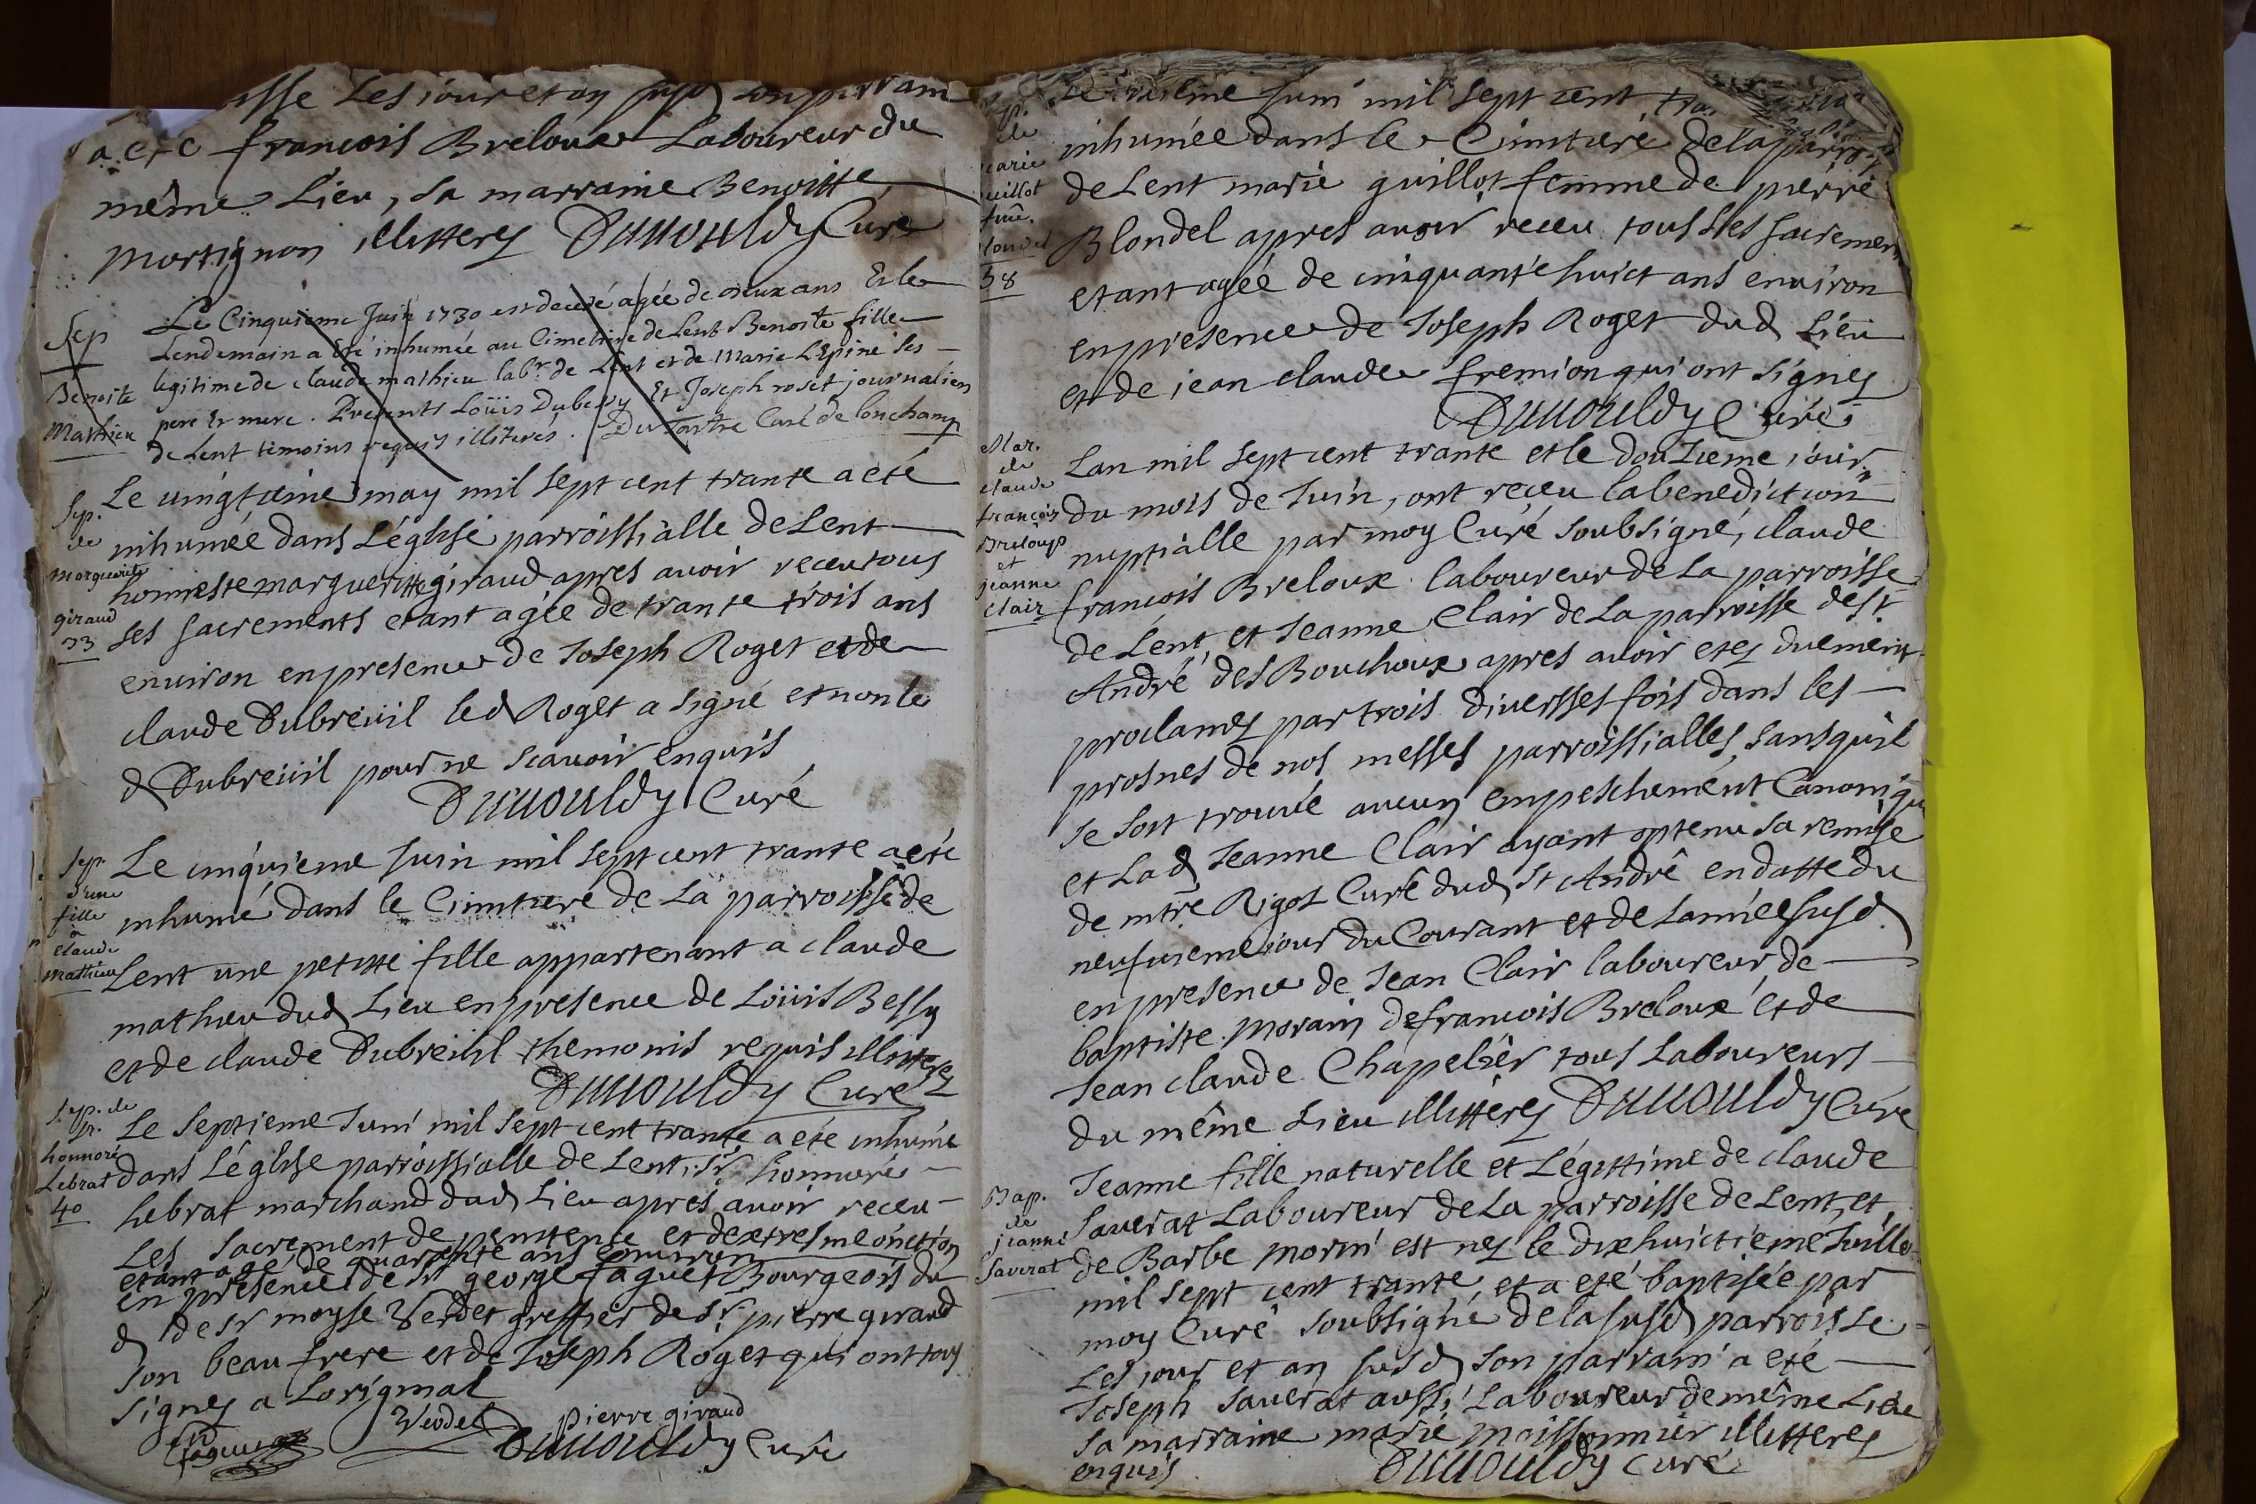 Les jour et an susd son parrain
a ete francois Breloux Laboureur du
même Lieu, sa marraine Benoitte
Mortignon illitterez Dunouldy Curé
Sep
Benoite
Mathieu
Le Cinquieme Juin 1730 est decedé agée de deux ans Et le
Lendemain a Eté inhumée au Cimetiere de Lent Benoite fille
legitime de claude mathieu labr. de Lent et de Marie L'Epine ses
pere Et mere. Presents Loüis Dubessy Et Joseph roset journalien
de Lent temoins requis illiterés. Du Tartre Curé de lonchamp
Sep.
de
marguerite
giraud
33
Le uingtieme may mil sept cent trante a eté
inhumée dans L'églisse parroissialle de Lent
honneste margueritte giraud apres auoir receu tous
ses sacrements etant agée de trante trois ans
enuiron en presence de Joseph Roget et de
claude Dubreüil led Roget a signé et non le
d Dubreüil pour ne scauoir enquis
Dunouldy Curé
Sep.
d'une
fille
a
claude
mathieu
Le cinquieme Juin mil sept cent trante a eté
inhumé dans le Cimtiere de La parroisse de
Lent une petitte fille appartenant a claude
mathieu dud Lieu en presence de Loüis Bessy
et de claude Dubreüil themoins requis illitterez
Dunouldy Curé
Sep. de
sr.
honnoré
Lebrat
40
Le Septieme Juin mil sept cent trante a eté inhumé
dans L'églisse parroissialle de Lent, sr honnoré
Lebrat marchand dud Lieu apres auoir receu
Les sacrement de penitence et dextresme onction
etant agé de quarante ans enuiron
en presence de sr george faguet Bourgeois du
d de sr moysse Verdet greffier de sr pierre giraud
son beau frere et de Joseph Roget qui ont tous
signez a Loriginal
faguet Verdet pierre giraud
Dunouldy Curé
Sep.
de
marie
guillot
fme.
blondel
58
Juin mil sept cent
inhumée dans le Cimtiere de la parroisse
de Lent marie guillot femme de pierre
Blondel apres auoir receu tous ses sacremen
etant agée de cinquante huict ans enuiron
en presence de Joseph Roget dud Lieu
et de jean claude fremion qui ont signez
Dunouldy Curé
Mar.
de
claude
francois
Breloup
et
jeanne
clair
Lan mil sept cent trante et le douzieme jour
du mois de Juin, ont receu la benediction
nuptialle par moy Curé soubsigné, claude
francois Breloux laboureur de La parroisse
de Lent, et Jeanne Clair de La parroisse de st
André des Bouchoux apres auoir etez duement
proclamez par trois diversses fois dans les
prosnes de nos messes parroissialles sans qu'il
se soit trouué aucun empeschement Canoniqu
et Lad Jeanne Clair ayant optenu sa remise
de mtre Rigot Curé dud st André en datte du
neufuieme jour du Courant et de L'année susd
en presence de Jean Clair laboureur de
baptiste morain de francois Breloux et de
Jean claude Chapelier tous Laboureurs
du même Lieu illitterez Dunouldy Curé
Bap.
de
jeanne
Saverat
Jeanne fille naturelle et Légittime de claude
Sauerat Laboureur de La parroisse de Lent, et
de Barbe morin est nez le dixhuictieme Juille
mil sept cent trante, et a eté baptisée par
moy Curé soubsigné de la susd parroisse
Les jour et an susd son parrain a eté
Joseph Sauerat aussi Laboureur de même Lieu
sa marraine marie moissonnier illitterez
enquis Dunouldy Curé